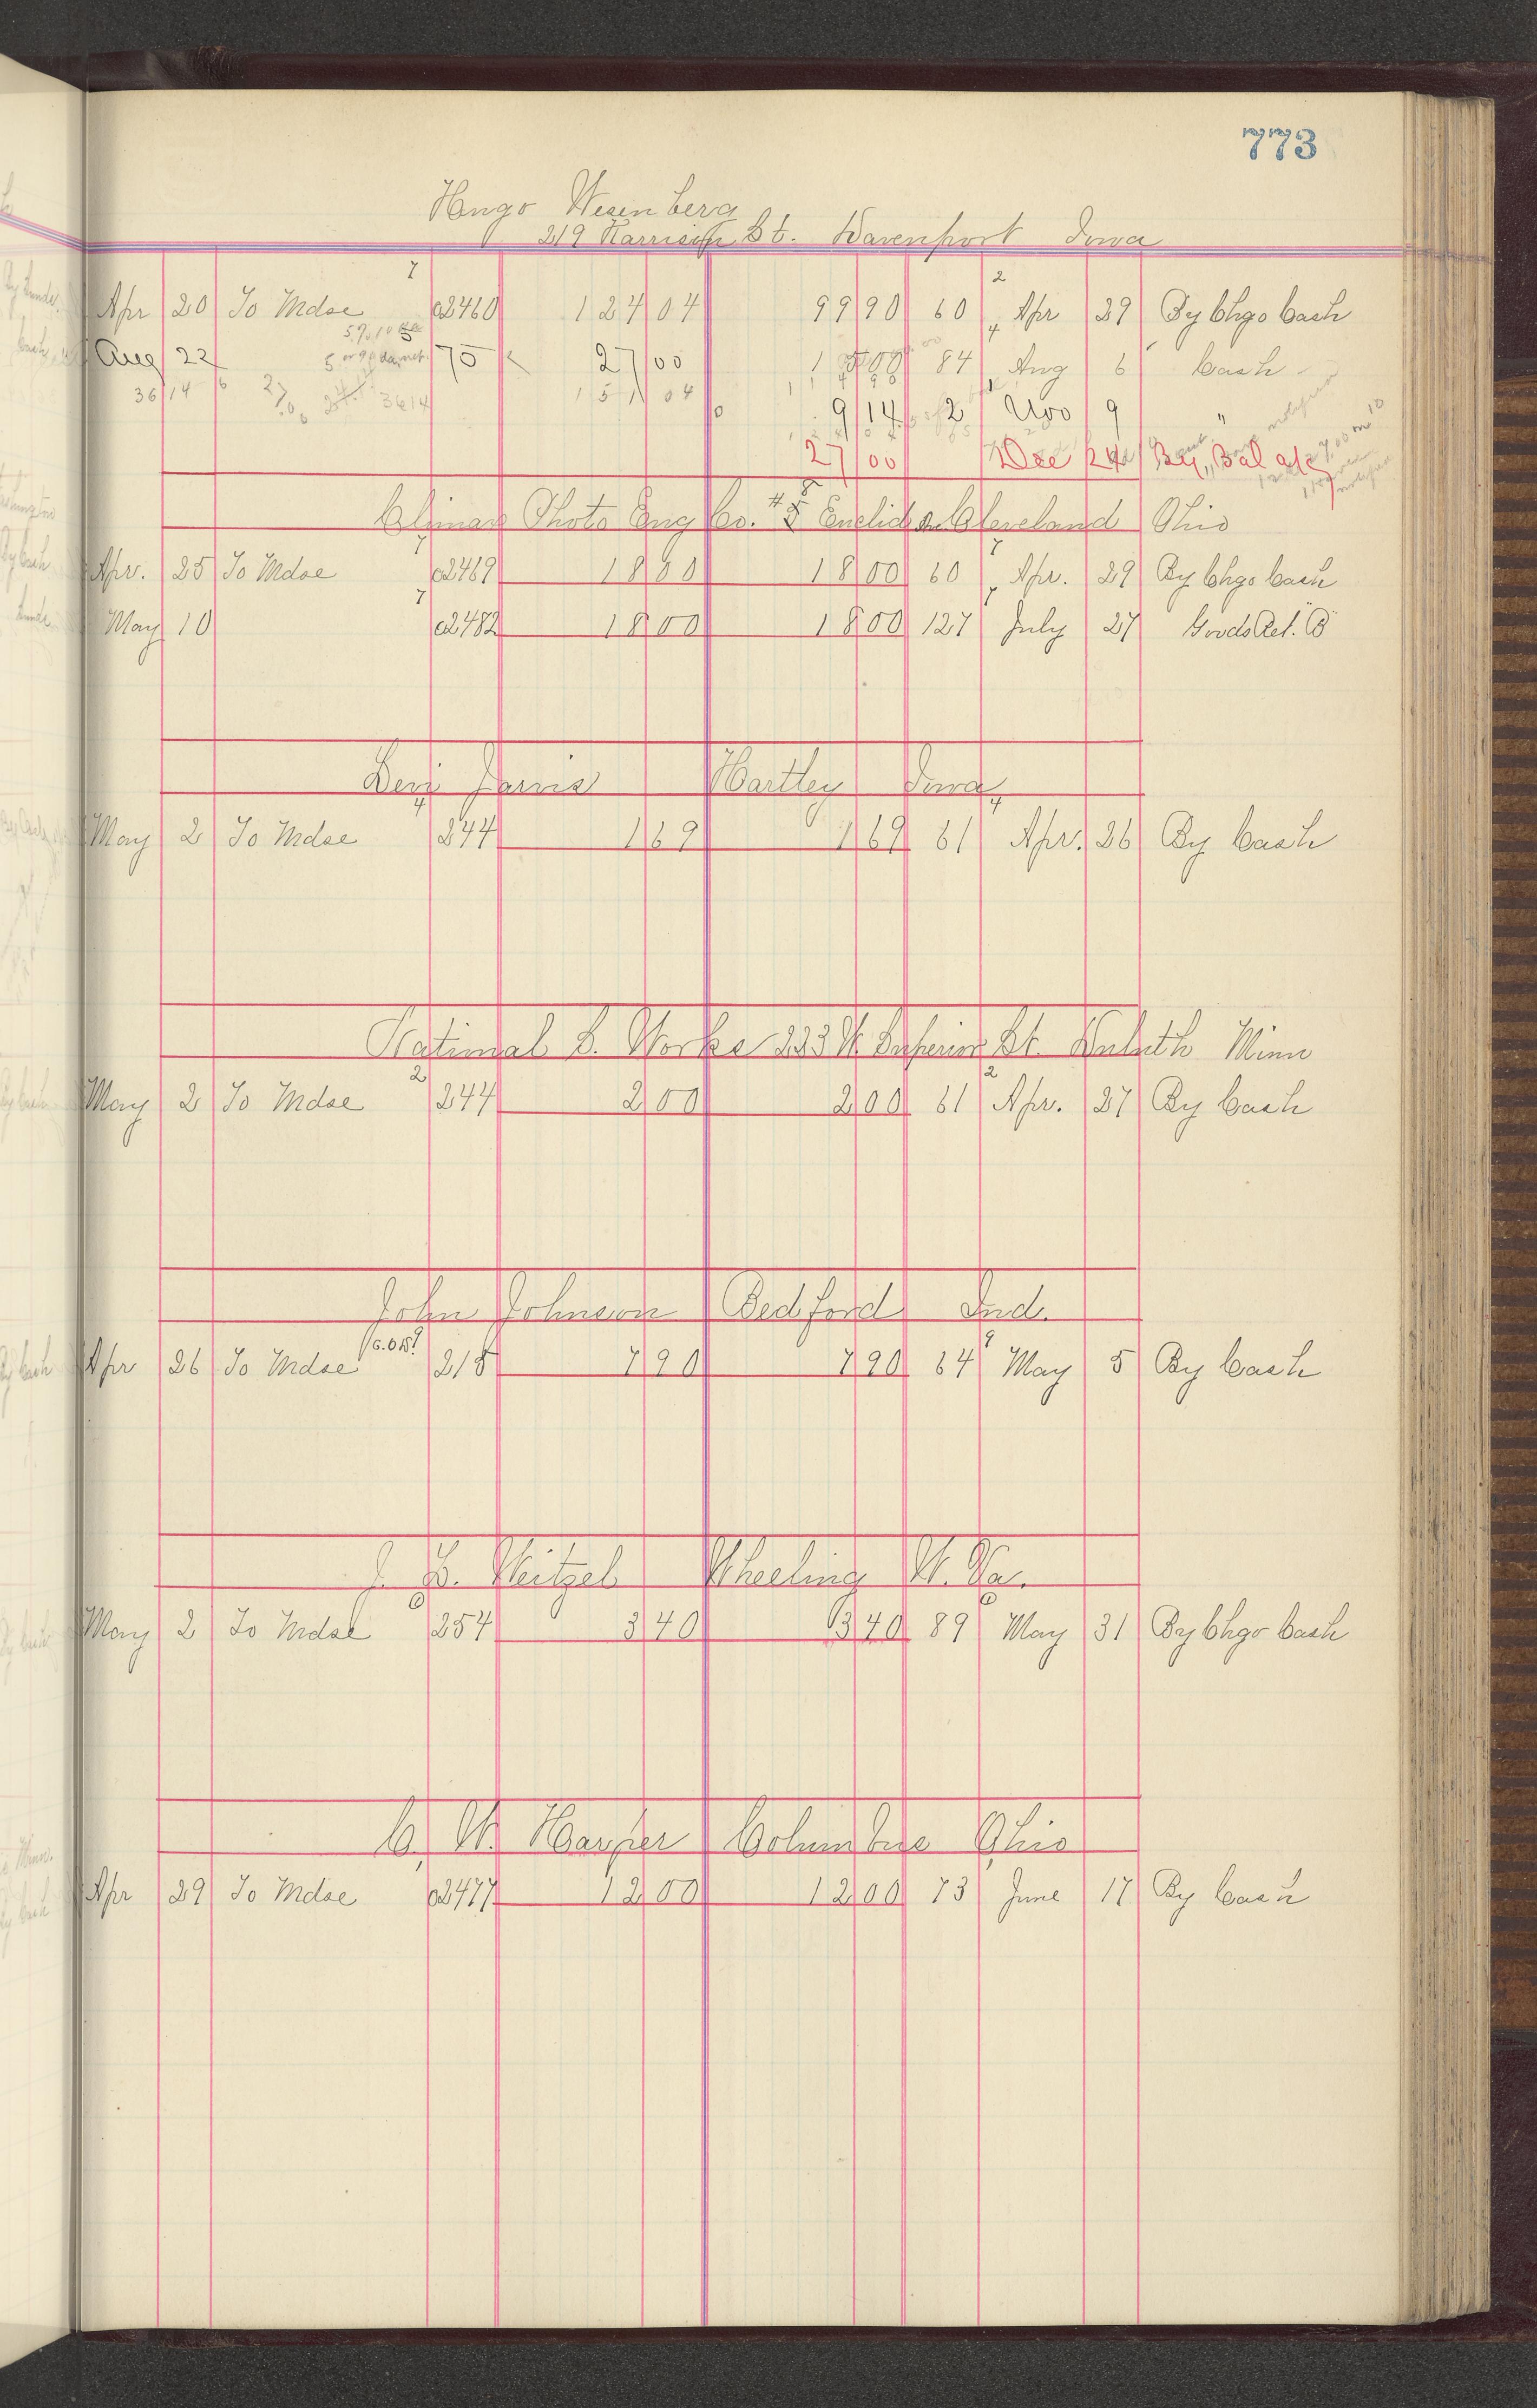 773
Hugo Wesenberg
219 Harrison St. Davenport Iowa
Apr 20 To Mdse a2460 124 04 99 90 60 Apr 29 By Chgo Cash
Aug 22 5 or 90 da. net. 75 27 00 84 Aug 6 Cash
36 14 27 36 14 151 04
9 14 Nov 9 "
27 00 Dec 24 By, Bal a/c
Climax Photo Eng Co. # 5 Euclid Av. Cleveland Ohio
Apr. 25 To Mdse a2469 18 00 18 00 60 Apr. 29 By Chgo Cash
May 10 a2482 18 00 18 00 127 July 27 Goods Ret. B
Benj Jarvis Hartley Iowa
May 2 To Mdse 244 1 69 1 69 61 Apr. 26 By Cash
National S. Works 223 W. Superior St. Duluth Minn
May 2 To Mdse 244 2 00 2 00 61 Apr. 27 By Cash
John Johnson Bedford Ind.
Apr 26 To Mdse C.O.D. 218 7 90 7 90 64 May 5 By Cash
J. B. Weitzel Wheeling W. Va.
May 2 To Mdse 254 3 40 3 40 89 May 31 By Chgo Cash
C. W. Harper Columbus Ohio
Apr 29 To Mdse a2477 12 00 12 00 73 June 17 By Cash